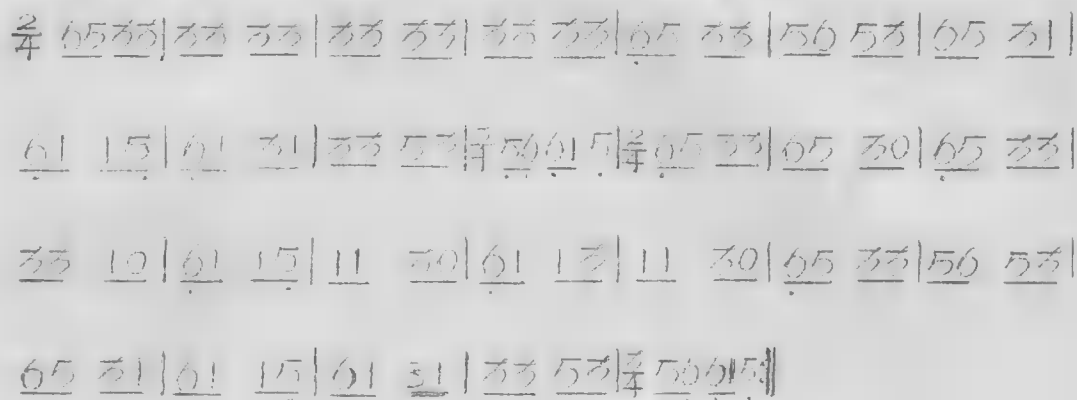 2/4 6533|33 33|33 33|33 33|65 33|56 53|65 31|
61 15|61 31|33 53|3/4 5661 5|2/4 65 33|65 30|65 33|
33 10|61 15|11 30|61 13|11 30|65 33|56 53|
65 31|61 15|61 31|33 53|3/4 5661 5‖